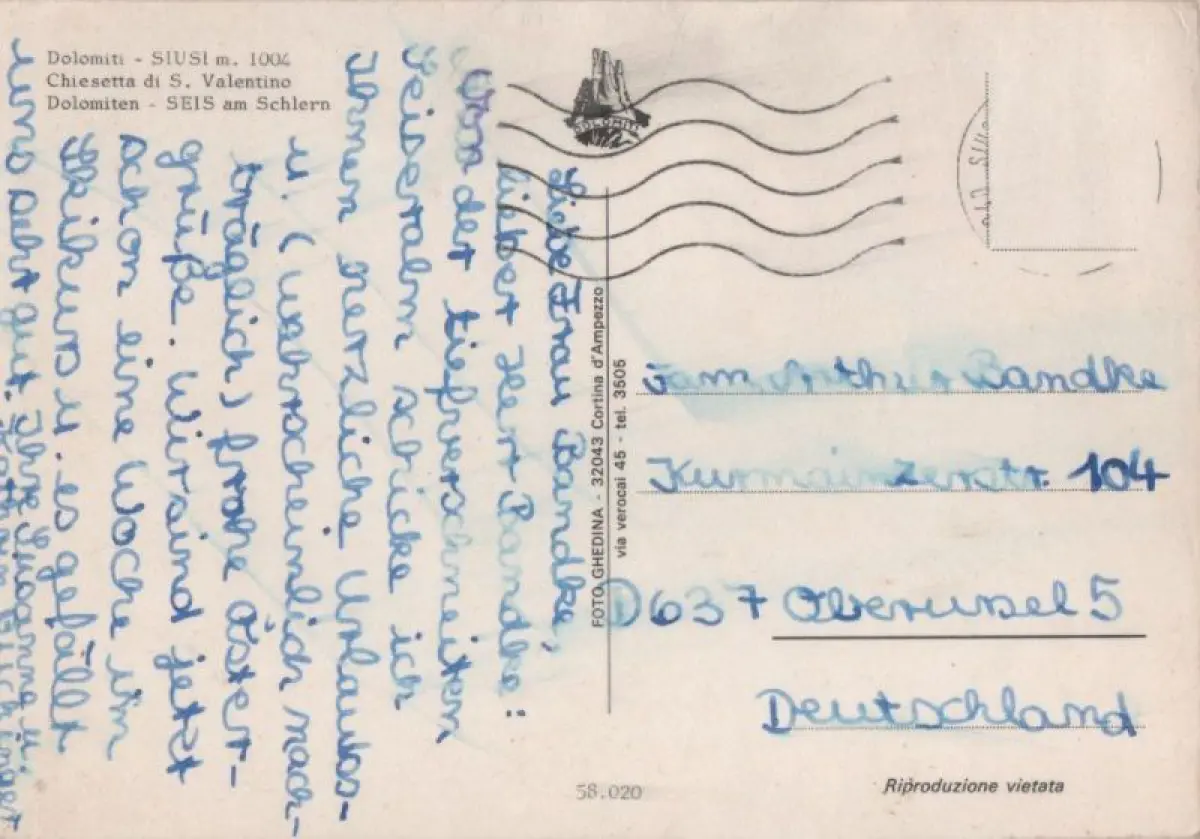 Dolomiti - SIUSI m. 1004
Chiesetta di S. Valentino
Dolomiten - SEIS am Schlern
DOLOMITI
Liebe Frau Bandke,
lieber Herr Bandke!
Von der tiefverschneiten
Seiseralm schicke ich
Ihnen herzliche Urlaubs-
u. (wahrscheinlich nach-
träglich) frohe Öster-
grüße. Wir sind jetzt
schon eine Woche im
Skikurs u. es gefällt
uns sehr gut. Ihre Susanne u.
FOTO GHEDINA - 32043 Cortina d'Ampezzo
via verocai 45 - tel. 3505
Fam. Arthur Bandke
Kurmainzerstr. 104
D637 Oberursel 5
Deutschland
58.020
Riproduzione vietata